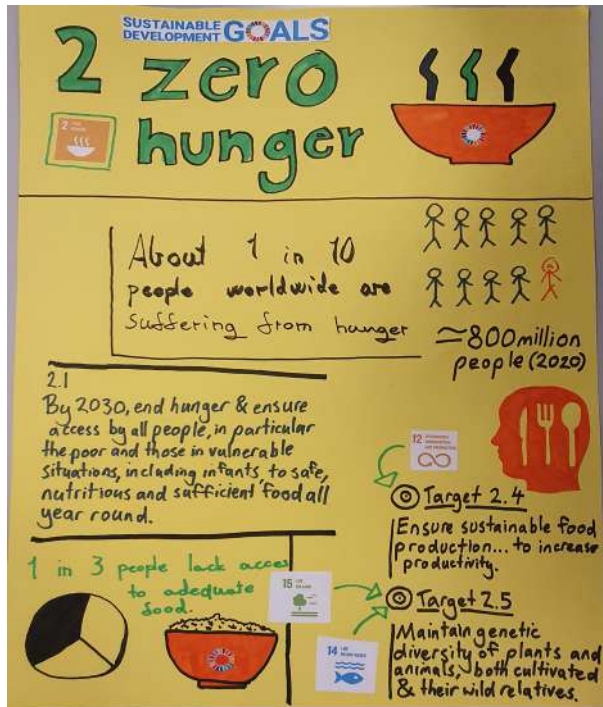 SUSTAINABLE
DEVELOPMENT GOALS
2 zero
hunger
2
About 1 in 10
people worldwide are
suffering from hunger
≃800million
people (2020)
2.1
By 2030, end hunger & ensure
access by all people, in particular
the poor and those in vulnerable
situations, including infants, to safe,
nutritious and sufficient food all
year round.
12
Target 2.4
Ensure sustainable food
production... to increase
productivity.
1 in 3 people lack access
to adequate
food.
15 LIFE ON LAND
Target 2.5
14
Maintain genetic
diversity of plants and
animals, both cultivated
& their wild relatives.